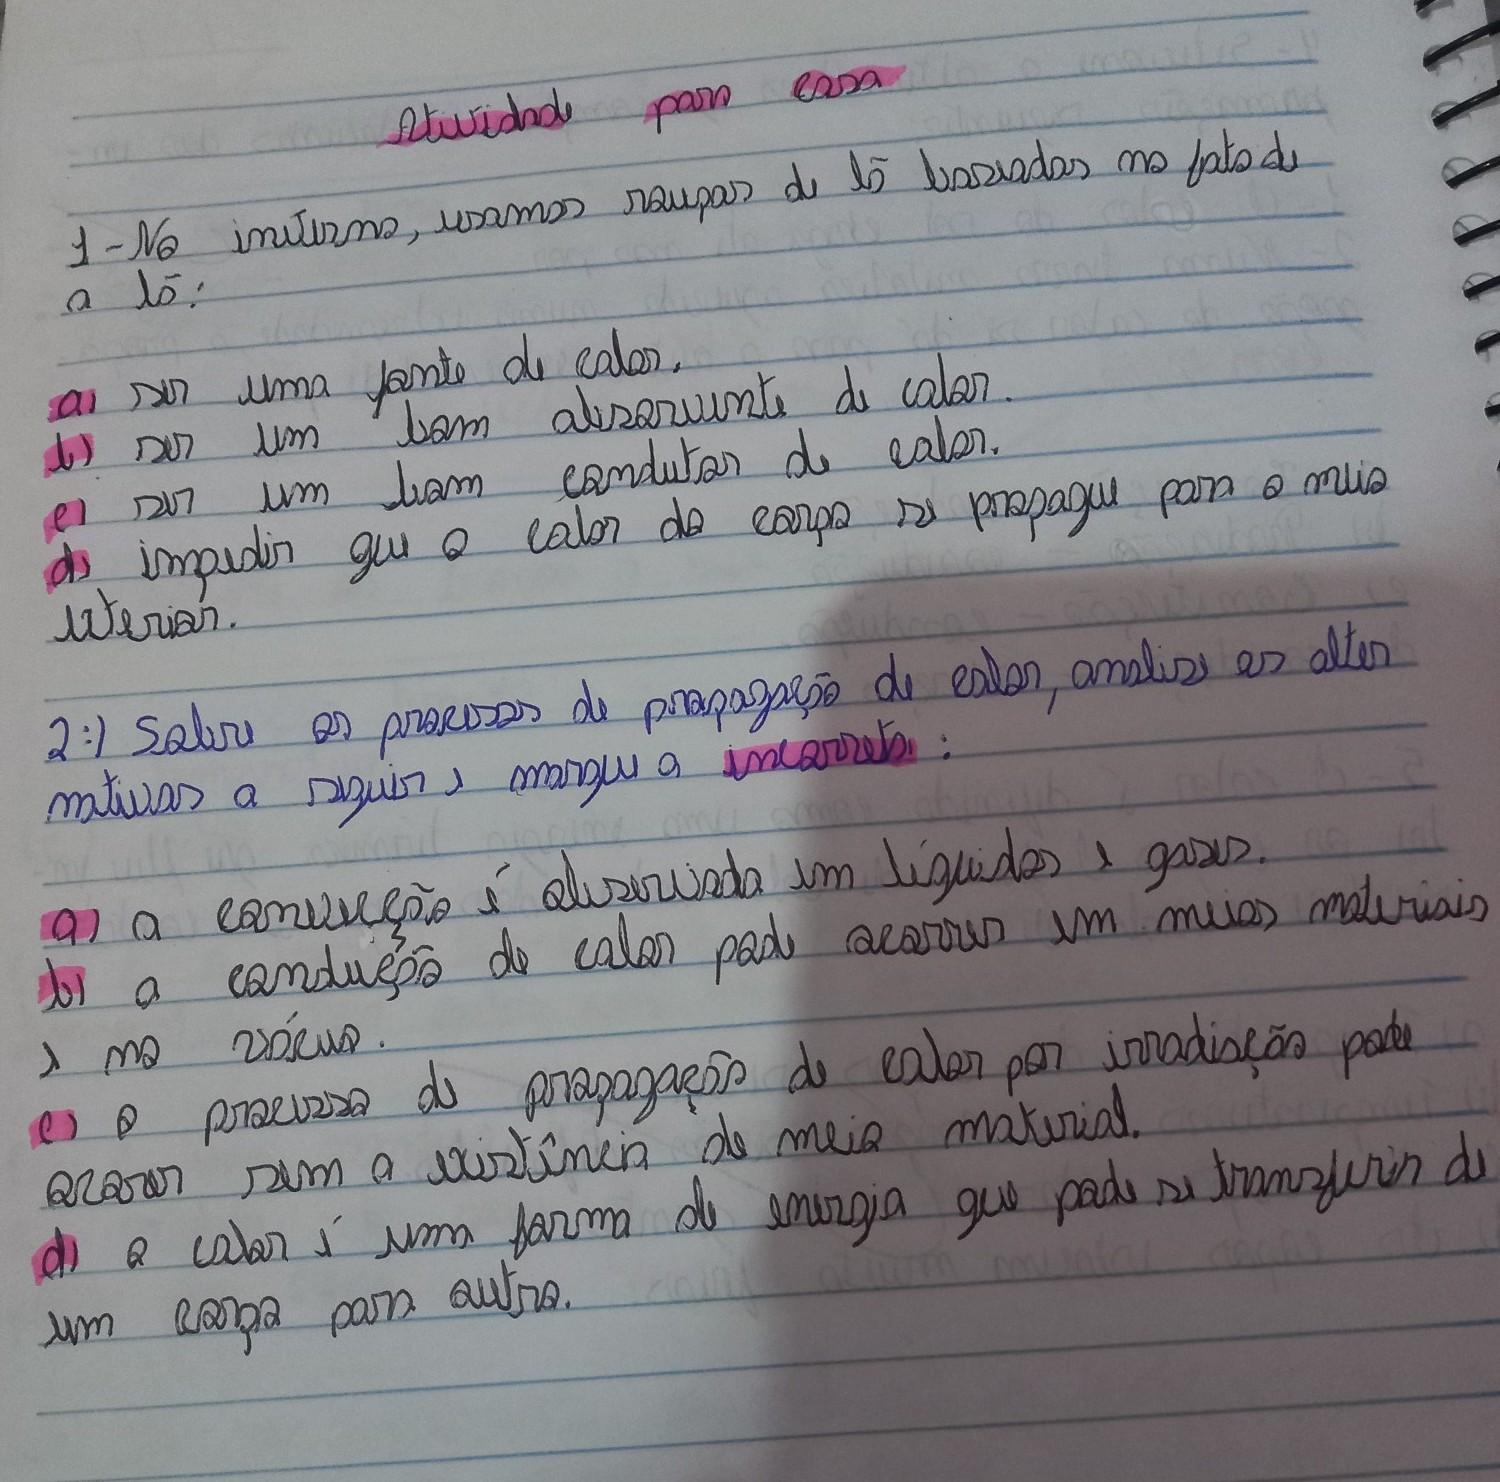 Atividade para casa
1-No inverno, usamos roupas de lã baseados no fato de
a lã:
a) ser uma fonte de calor.
b) ser um bom absorvente de calor.
c) ser um bom condutor de calor.
d) impedir que o calor do corpo se propague para o meio
exterior.
2:) Sobre os processos de propagação de calor, analise as alter
nativas a seguir e marque a incorreta:
a) a convecção é observada em líquidos e gases.
b) a condução de calor pode ocorrer em meios materiais
e no vácuo.
c) o processo de propagação de calor por irradiação pode
ocorrer sem a existência de meio material.
d) o calor é uma forma de energia que pode se transferir de
um corpo para outro.